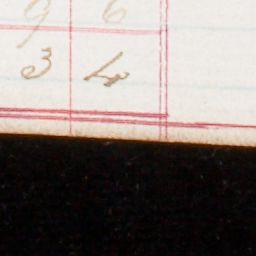 9 6
3 4